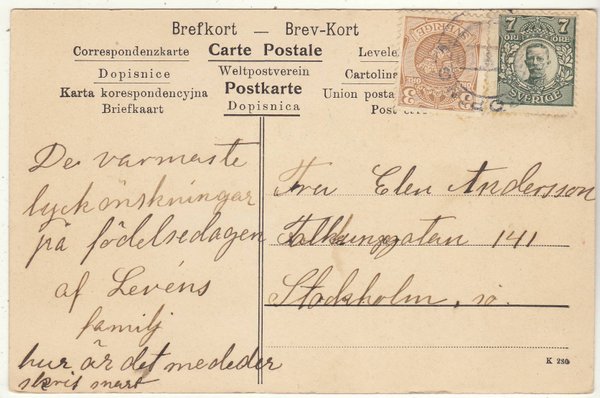 Brefkort — Brev-Kort
Correspondenzkarte Carte Postale Levele
Dopisnice Weltpostverein Cartolina
Karta korespondencyjna Postkarte Union posta
Briefkaart Dopisnica Post
SVERIGE
3
7 7
ÖRE ÖRE
SVERIGE
De varmaste
lyckönskningar
på födelsedagen
af Levéns
familj
hur är det med eder
skrif snart
Fru Elen Andersson
141
Stockholm, sö.
K 280